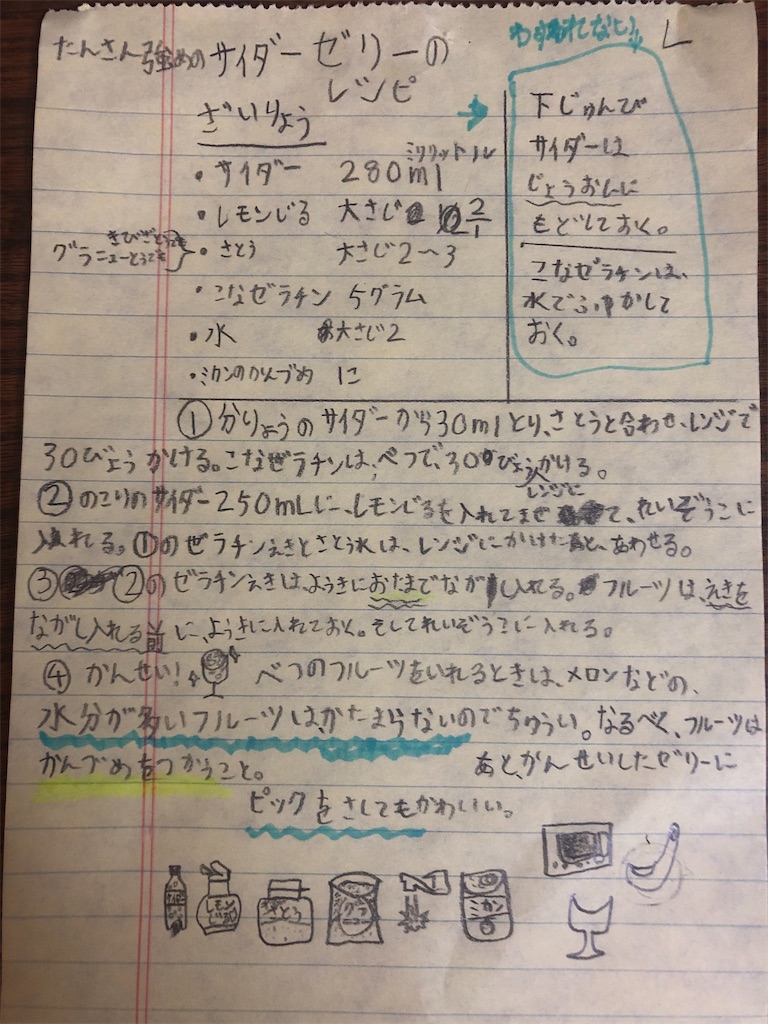 たんさん強めのサイダーゼリーの
レシピ
わすれないし
ざいりょう
ミリリットル
・サイダー 280ml
・レモンじる 大さじ 2/1
きびざとうでも
グラニューとうでも
・さとう 大さじ2〜3
・こなゼラチン 5グラム
・水 大さじ2
・ミカンのかんづめ 1こ
下じゅんび
サイダーは
じょうおんに
もどしておく。
こなゼラチンは、
水でふやかして
おく。
①分りょうのサイダーから30mlとり、さとうと合わせ、レンジで
30びょうかける。こなゼラチンは、べつで、30びょうかける。
レンジに
②のこりのサイダー250mLに、レモンじるを入れてまぜて、れいぞうこに
入れる。①のゼラチンえきとさとう水は、レンジにかけた後、あわせる。
③②のゼラチンえきは、ようきにおたまでながし入れる。フルーツは、えきを
ながし入れる前に、ようきに入れておく。そしてれいぞうこに入れる。
④かんせい! べつのフルーツをいれるときは、メロンなどの、
水分が多いフルーツは、かたまらないのでちゅうい。なるべく、フルーツは
かんづめをつかうこと。 あと、かんせいしたゼリーに
ピックをさしてもかわいい。
レモン
さとう
グラ
カン